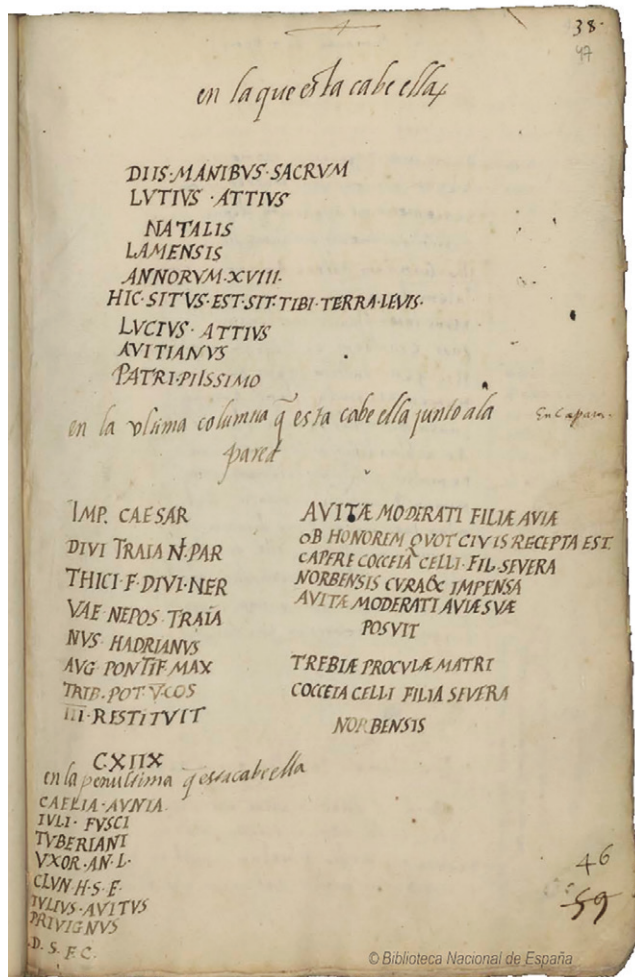 38.
47
en la que esta cabe ella
DIIS·MANIBVS·SACRVM
LVTIVS·ATTIVS
NATALIS
LAMENSIS
ANNORVM·XVIII·
HIC·SITVS·EST·SIT·TIBI·TERRA·LEVIS·
LVCIVS·ATTIVS
AVITIANVS
PATRI·PIISSIMO
en la vltima columna q̃ esta cabe ella junto ala
pared
En Capara.
IMP. CAESAR
DIVI TRAIAN·PAR
THICI·F·DIVI·NER
VAE·NEPOS·TRAIA
NVS·HADRIANVS
AVG·PONTIF·MAX
TRIB·POT·V·COS
III·RESTITVIT
CXIIX
AVITÆ MODERATI FILIÆ AVIÆ
OB HONOREM QVOT CIVIS RECEPTA EST
CAPERE COCCEIA CELLI·FIL·SEVERA
NORBENSIS CVRA & IMPENSA
AVITÆ MODERATI AVIÆ SVÆ
POSVIT
TREBIÆ PROCVLÆ MATRI
COCCEIA CELLI FILIA SEVERA
NORBENSIS
en la penultima q̃ esta cabe ella
CAELIA·AVNIA
IVLI·FVSCI
TVBERIANI
VXOR·AN·L·
CLVN·H·S·E·
IVLIVS·AVITVS
PRIVIGNVS
D·S·F·C·
46
59
© Biblioteca Nacional de España